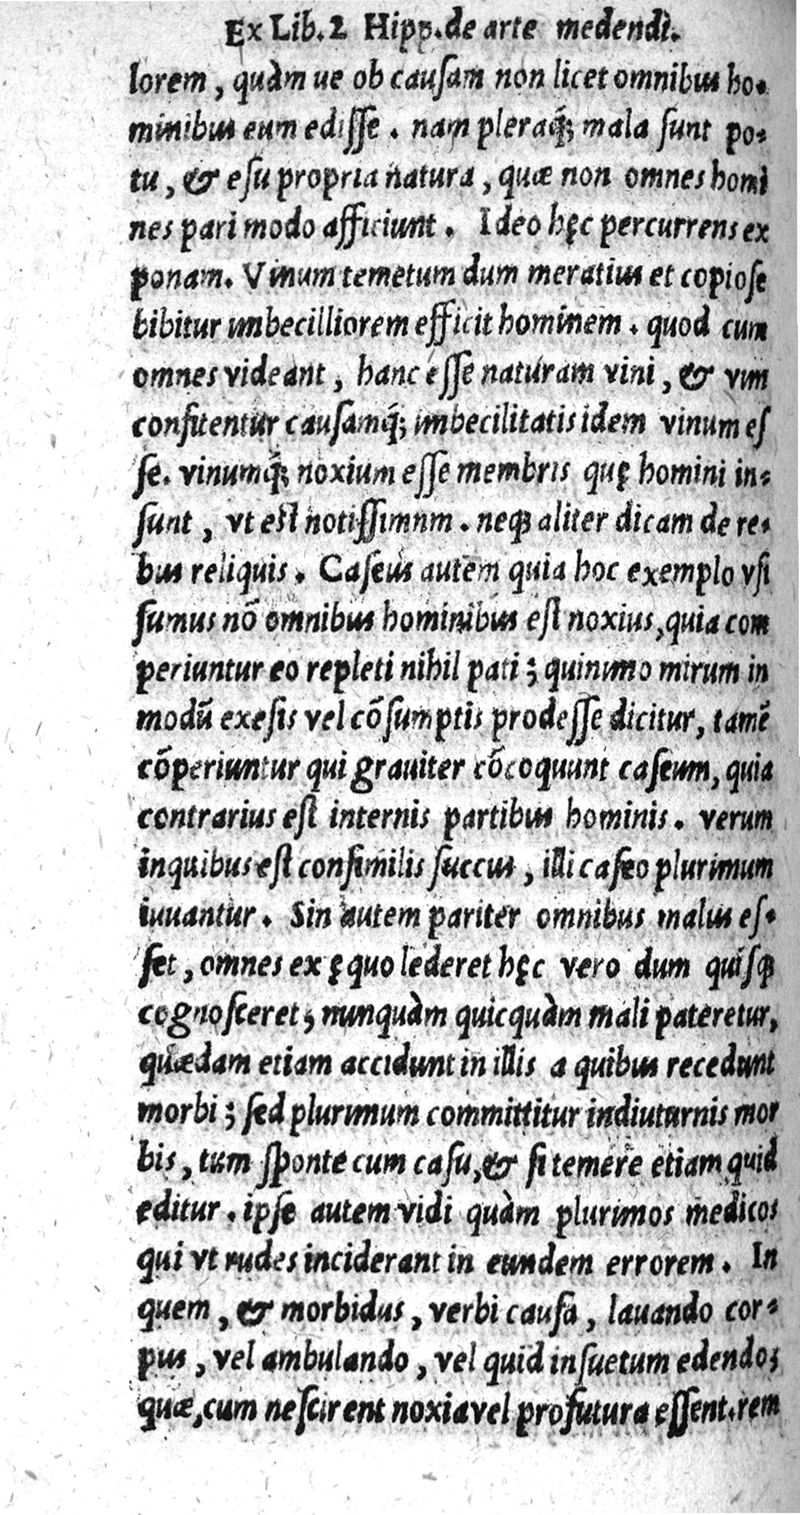 Ex Lib. 2 Hipp. de arte medendi.
lorem, quàm ue ob cauſam non licet omnibus ho-
minibus eum ediſſe. nam pleraq́; mala ſunt po-
tu, & eſu propria natura, quæ non omnes homi
nes pari modo afficiunt. Ideo hęc percurrens ex
ponam. Vinum temetum dum meratius et copioſe
bibitur imbecilliorem efficit hominem. quod cum
omnes videant, hanc eſſe naturam vini, & vim
confitentur cauſamq́; imbecilitatis idem vinum eſ
ſe. vinumq́; noxium eſſe membris quę homini in-
ſunt, vt eſt notiſſimnm. neqꝫ aliter dicam de re-
bus reliquis. Caſeus autem quia hoc exemplo vſi
ſumus nõ omnibus hominibus eſt noxius, quia com
periuntur eo repleti nihil pati; quinimo mirum in
modũ exeſis vel cõſumptis prodeſſe dicitur, tamẽ
cõperiuntur qui grauiter cõcoquunt caſeum, quia
contrarius eſt internis partibus hominis. verum
inquibus eſt conſimilis ſuccus, illi caſeo plurimum
iuuantur. Sin autem pariter omnibus malus eſ-
ſet, omnes ex ęquo lederet hęc vero dum quiſqꝫ
cognoſceret; nunquàm quicquàm mali pateretur,
quædam etiam accidunt in illis a quibus recedunt
morbi; ſed plurimum committitur indiuturnis mor
bis, tum ſponte cum caſu, & ſi temere etiam quid
editur. ipſe autem vidi quàm plurimos medicos
qui vt rudes inciderant in eundem errorem. In
quem, & morbidus, verbi cauſa, lauando cor-
pus, vel ambulando, vel quid inſuetum edendo;
quæ, cum neſcirent noxia vel profutura eſſent. rem